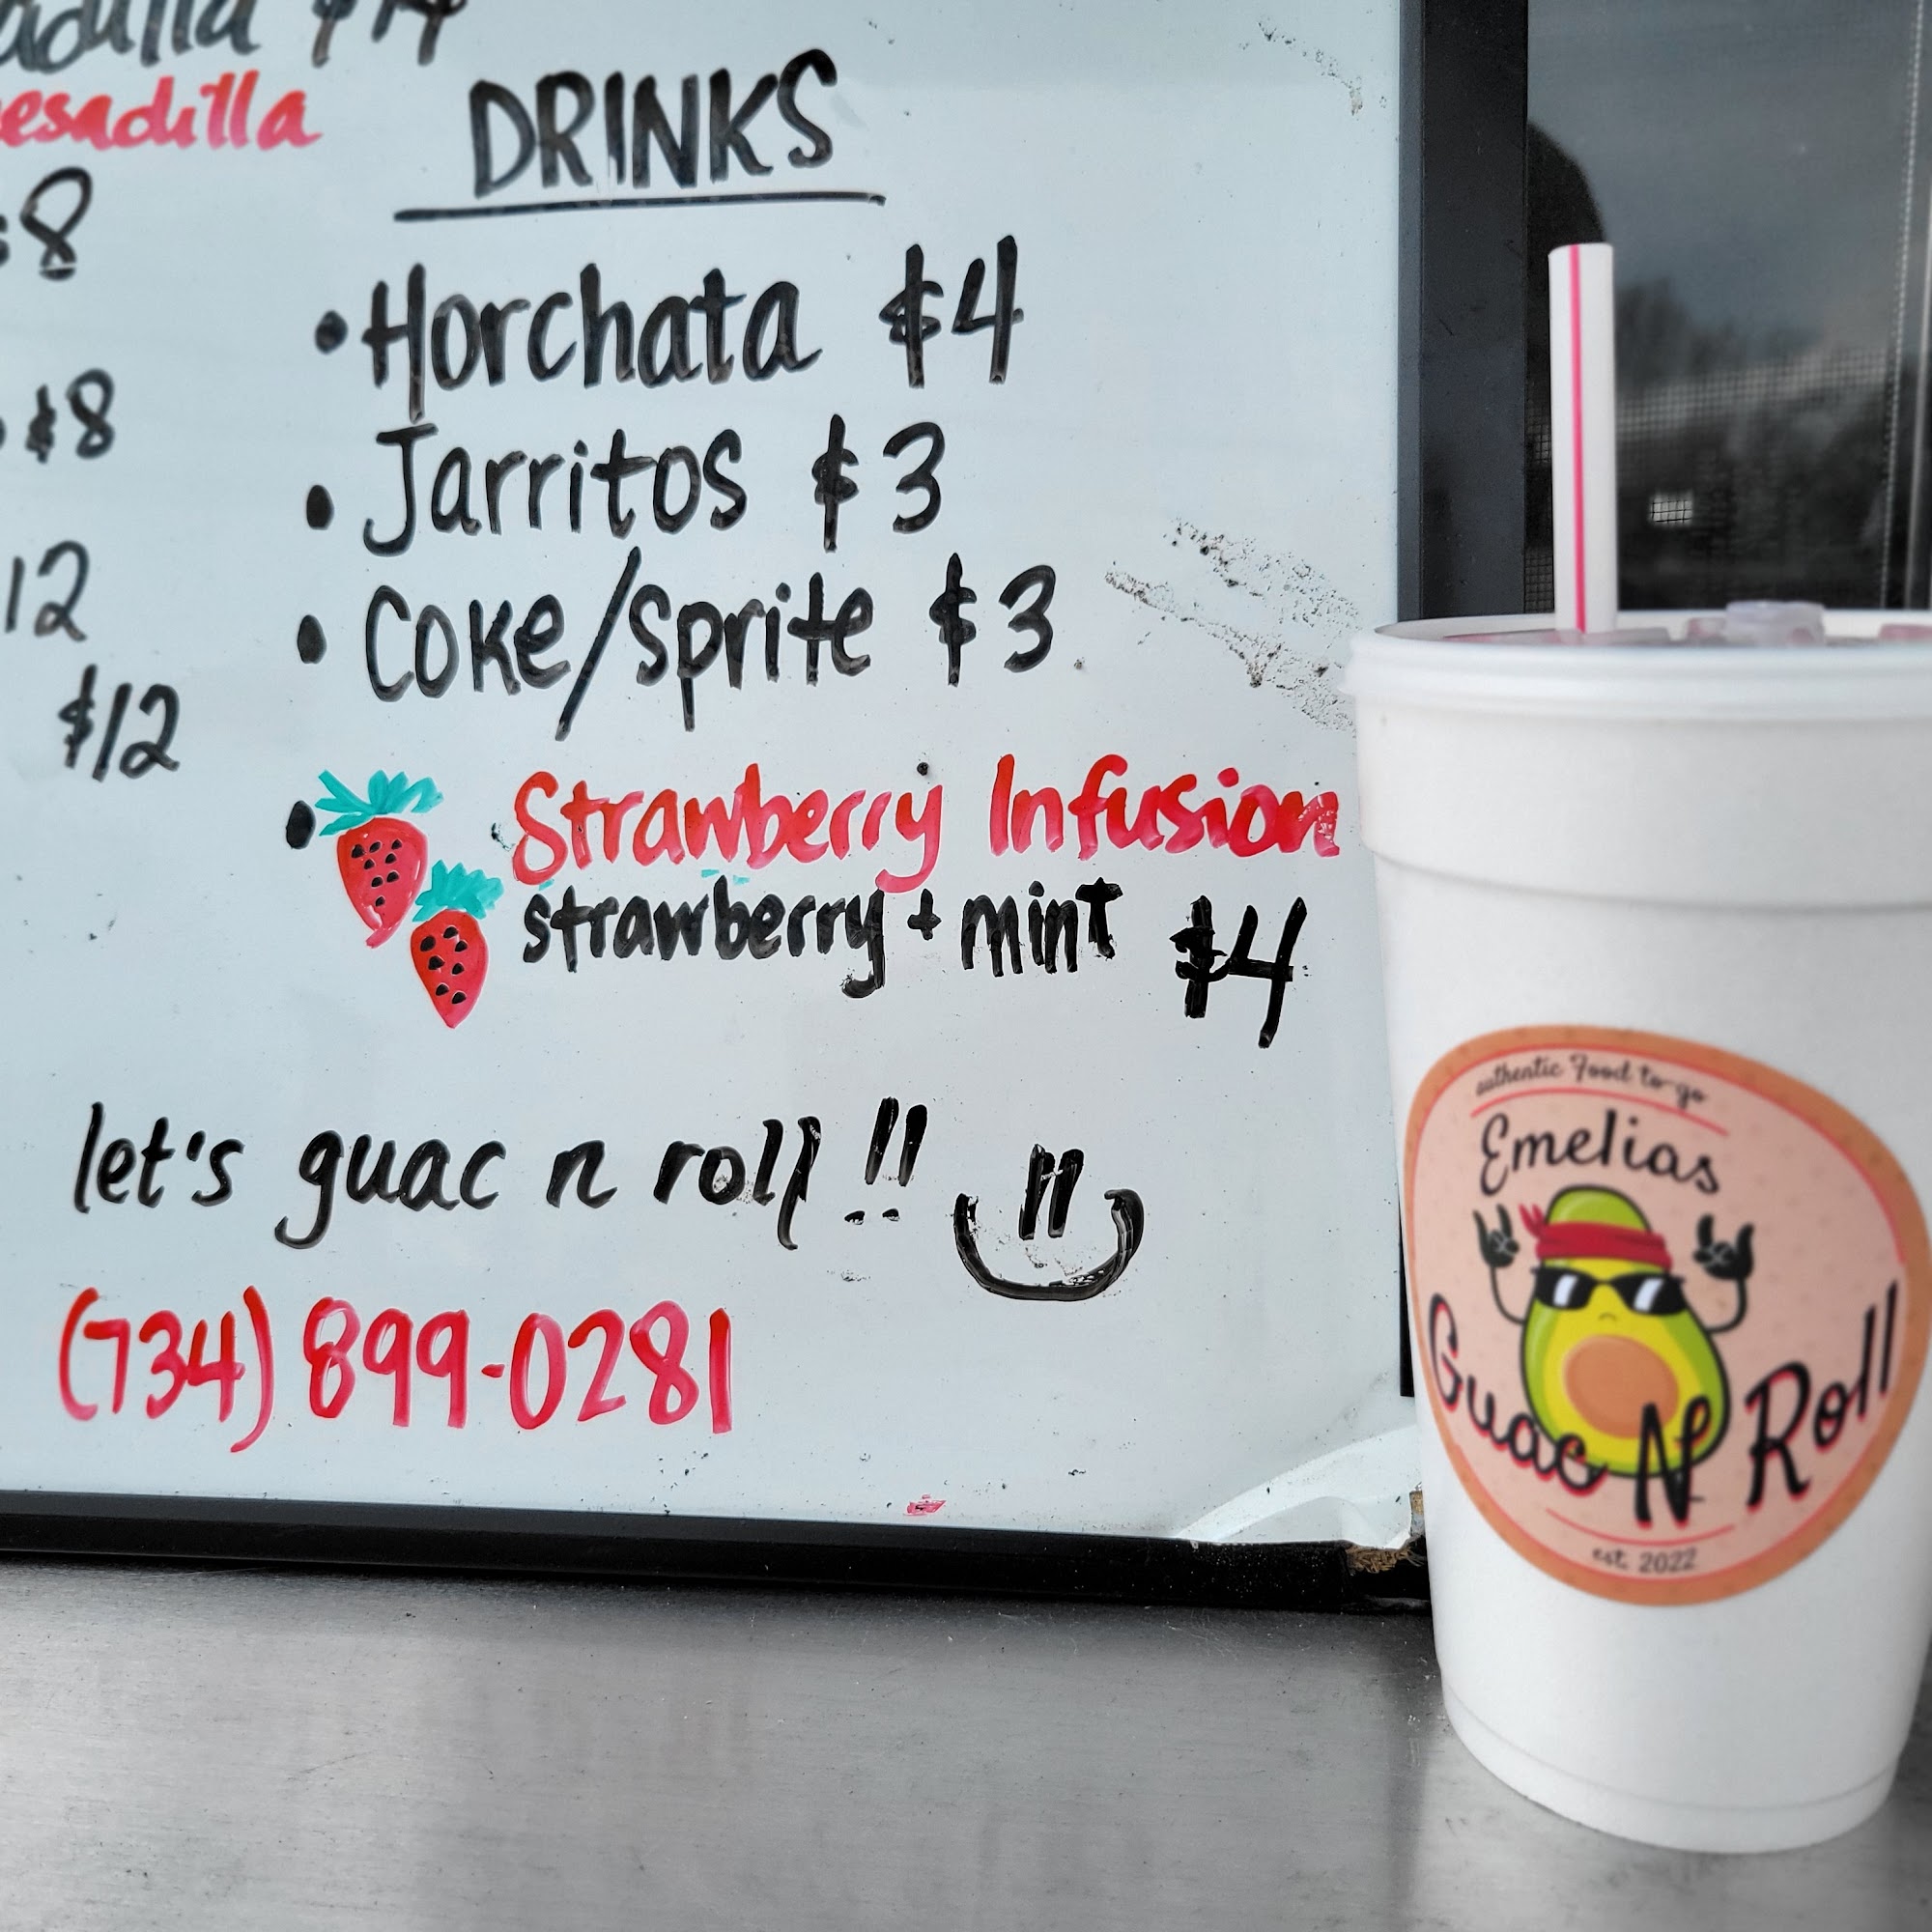 $14
$8
$8
12
$12
DRINKS
• Horchata $4
• Jarritos $3
• Coke/sprite $3
• Strawberry Infusion
strawberry + mint $4
let's guac n roll!!
(734) 899-0281
authentic Food to go
Emelias
Guac N Roll
est. 2022